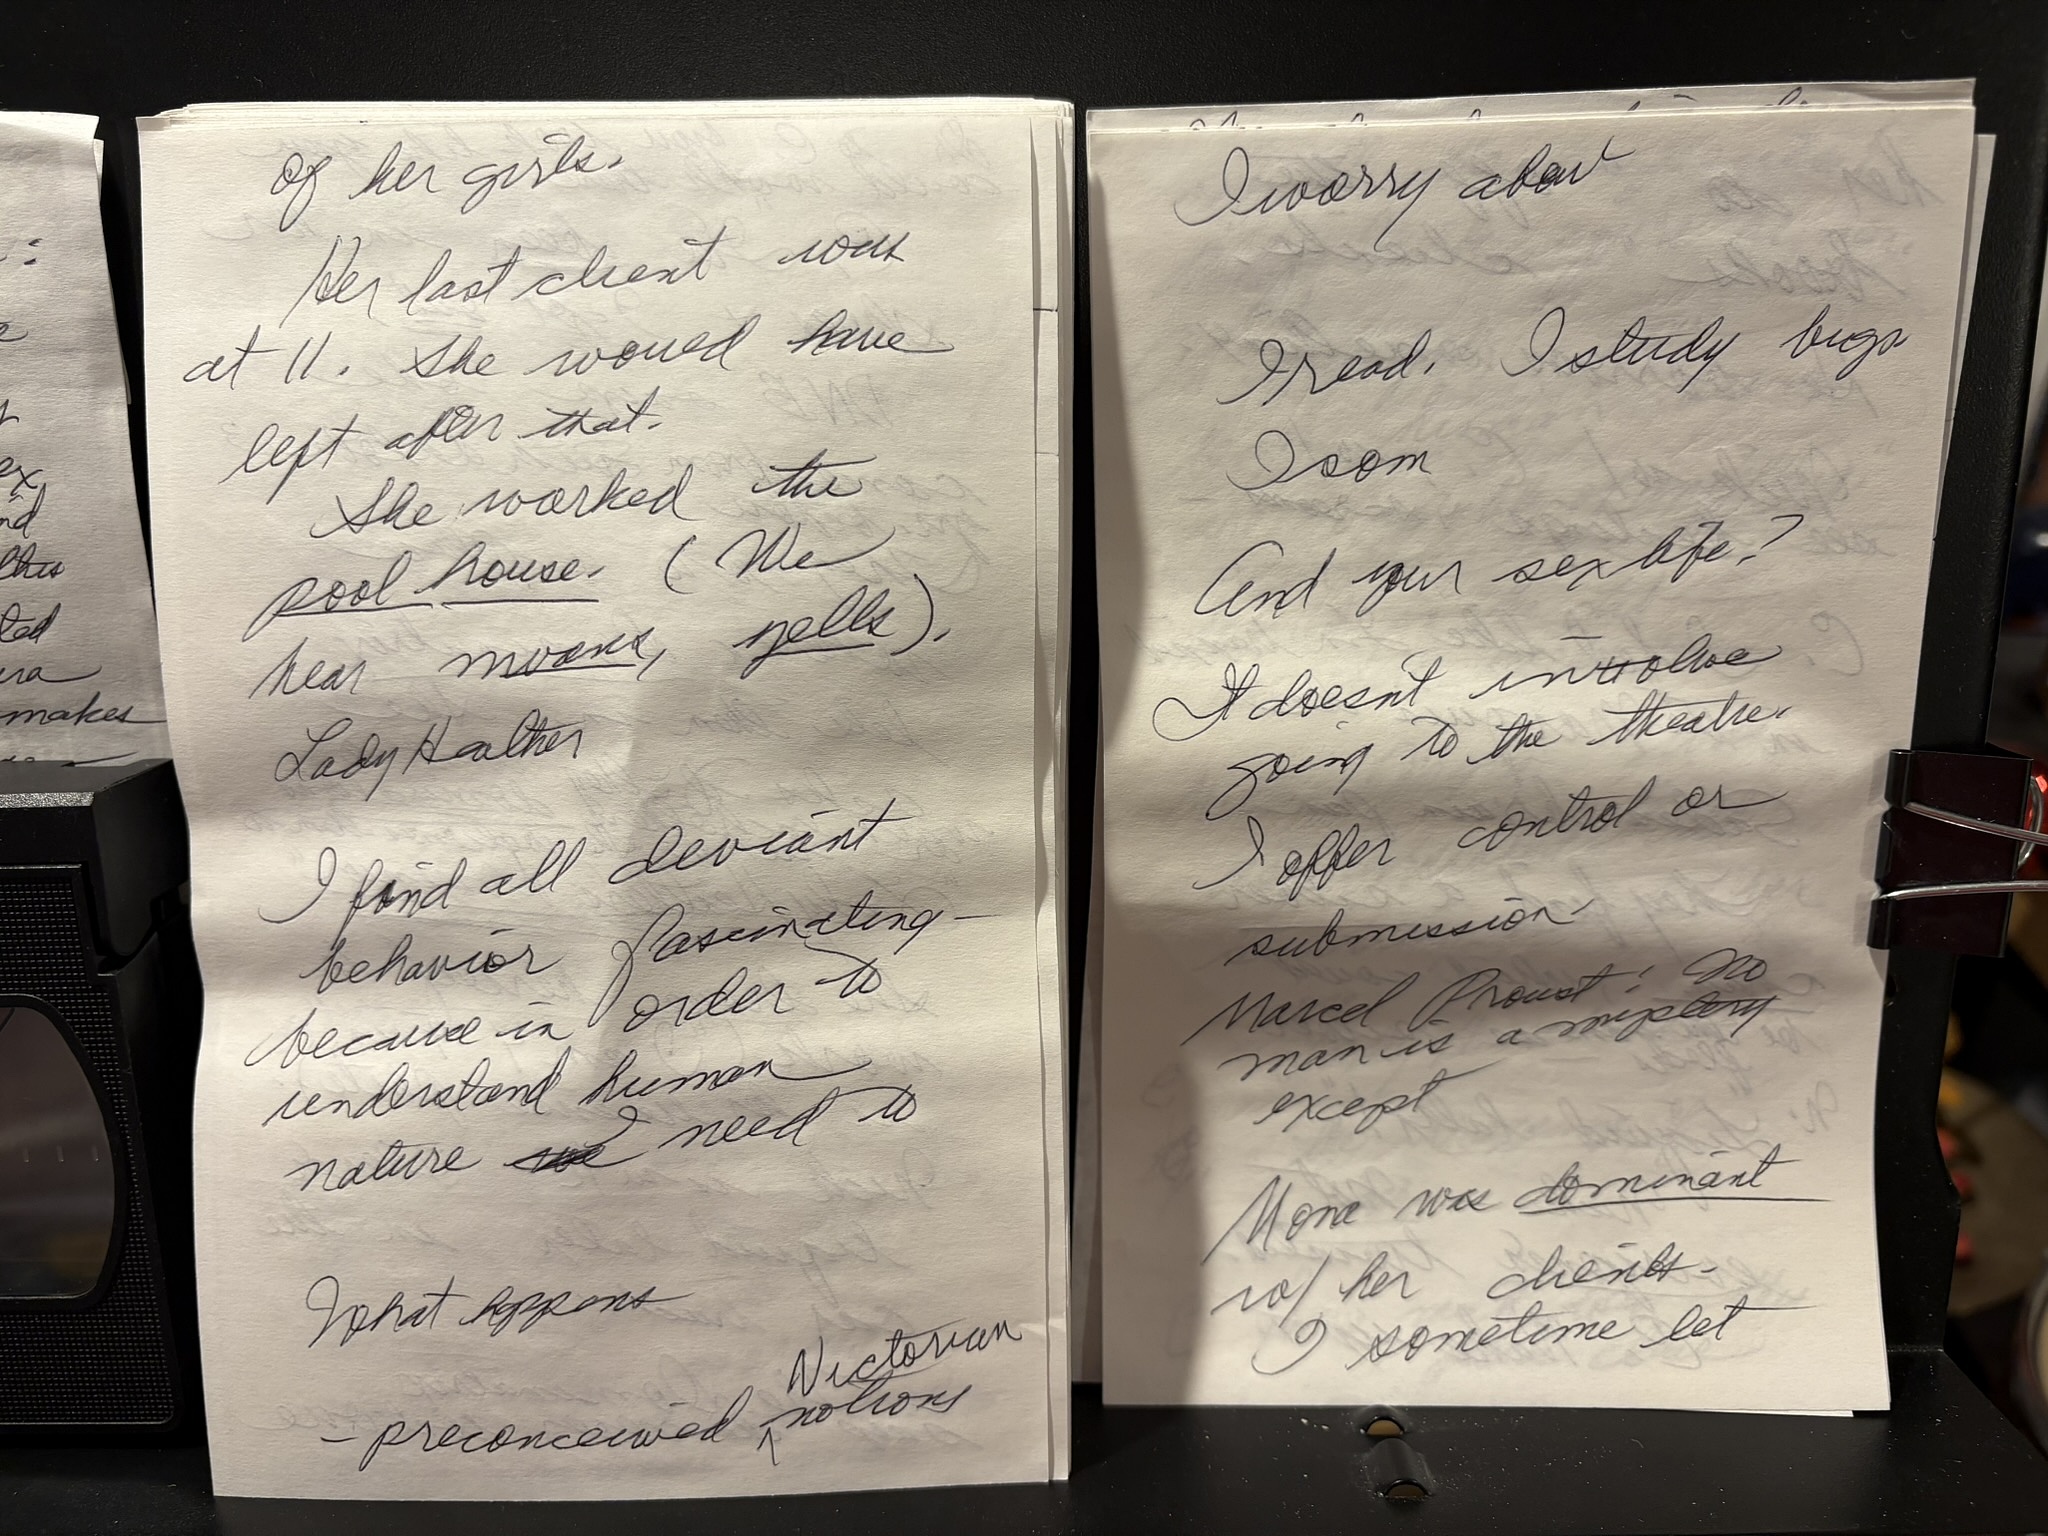 of her girls.
Her last client was
at 11. She would have
left after that.
She worked the
pool house. (We
hear moans, yells).
Lady Heather
I find all deviant
behavior fascinating -
because in order to
understand human
nature I need to
What happens
Victorian
- preconceived notions
ex
nd
ted
makes
I worry abou
I read. I study bugs
I som
And your sex life?
It doesn't involve
going to the theatre.
I offer control or
submission
Marcel Proust: No
man is a mystery
except
Mona was dominant
w/ her clients.
I sometime let